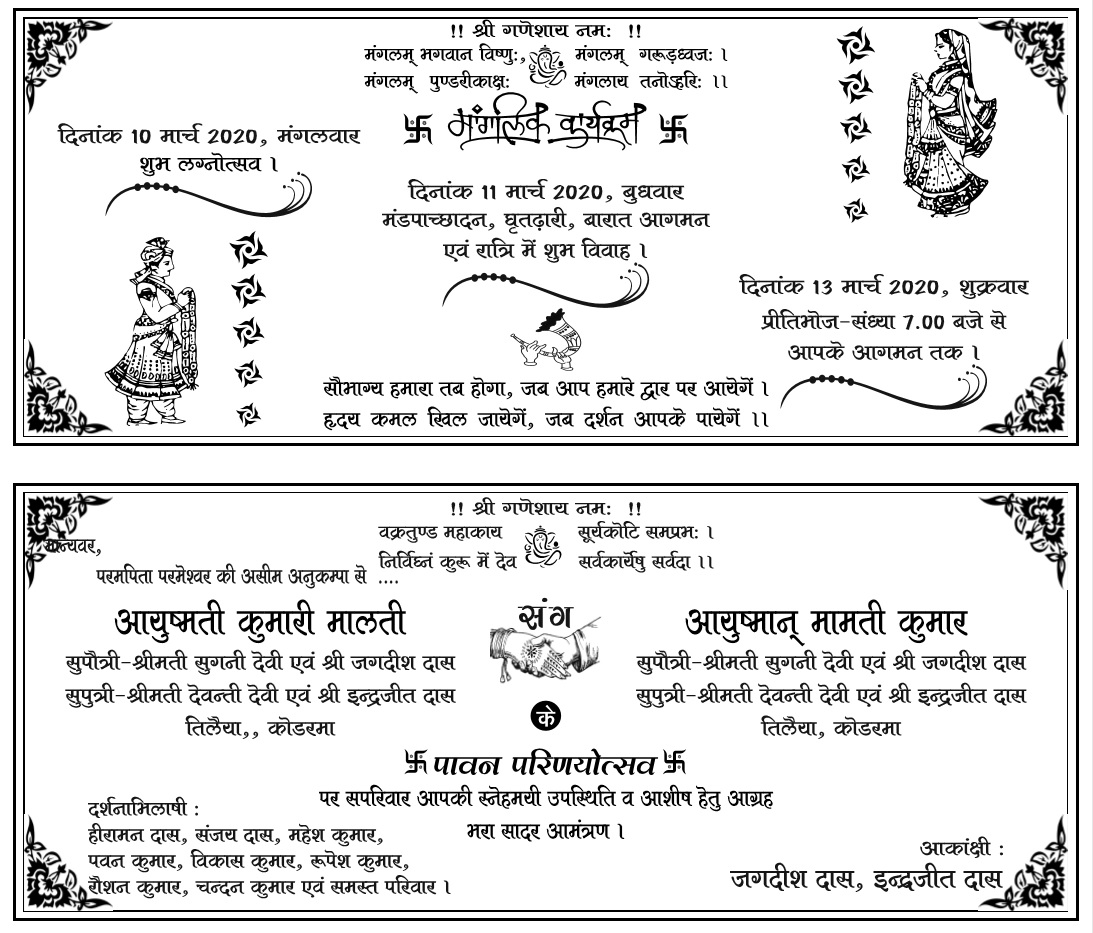 !! श्री गणेशाय नमः !!
मंगलम् भगवान विष्णुः, मंगलम् गरूड़ध्वजः ।
मंगलम् पुण्डरीकाक्षः मंगलाय तनोऽहरिः ।।
मांगलिक कार्यक्रम
दिनांक 10 मार्च 2020, मंगलवार
शुभ लग्नोत्सव ।
दिनांक 11 मार्च 2020, बुधवार
मंडपाच्छादन, घृतढ़ारी, बारात आगमन
एवं रात्रि में शुभ विवाह ।
दिनांक 13 मार्च 2020, शुक्रवार
प्रीतिभोज-संध्या 7.00 बजे से
आपके आगमन तक ।
सौभाग्य हमारा तब होगा, जब आप हमारे द्वार पर आयेगें ।
हृदय कमल खिल जायेगें, जब दर्शन आपके पायेगें ।।
!! श्री गणेशाय नमः !!
वक्रतुण्ड महाकाय सूर्यकोटि समप्रभः ।
निर्विघ्नं कुरू में देव सर्वकार्येषु सर्वदा ।।
मान्यवर,
परमपिता परमेश्वर की असीम अनुकम्पा से ....
आयुष्मती कुमारी मालती
सुपौत्री-श्रीमती सुगनी देवी एवं श्री जगदीश दास
सुपुत्री-श्रीमती देवन्ती देवी एवं श्री इन्द्रजीत दास
तिलैया,, कोडरमा
संग
आयुष्मान् मामती कुमार
सुपौत्री-श्रीमती सुगनी देवी एवं श्री जगदीश दास
सुपुत्री-श्रीमती देवन्ती देवी एवं श्री इन्द्रजीत दास
तिलैया, कोडरमा
के
पावन परिणयोत्सव
पर सपरिवार आपकी स्नेहमयी उपस्थिति व आशीष हेतु आग्रह
भरा सादर आमंत्रण ।
दर्शनाभिलाषी :
हीरामन दास, संजय दास, महेश कुमार,
पवन कुमार, विकास कुमार, रूपेश कुमार,
रौशन कुमार, चन्दन कुमार एवं समस्त परिवार ।
आकांक्षी :
जगदीश दास, इन्द्रजीत दास